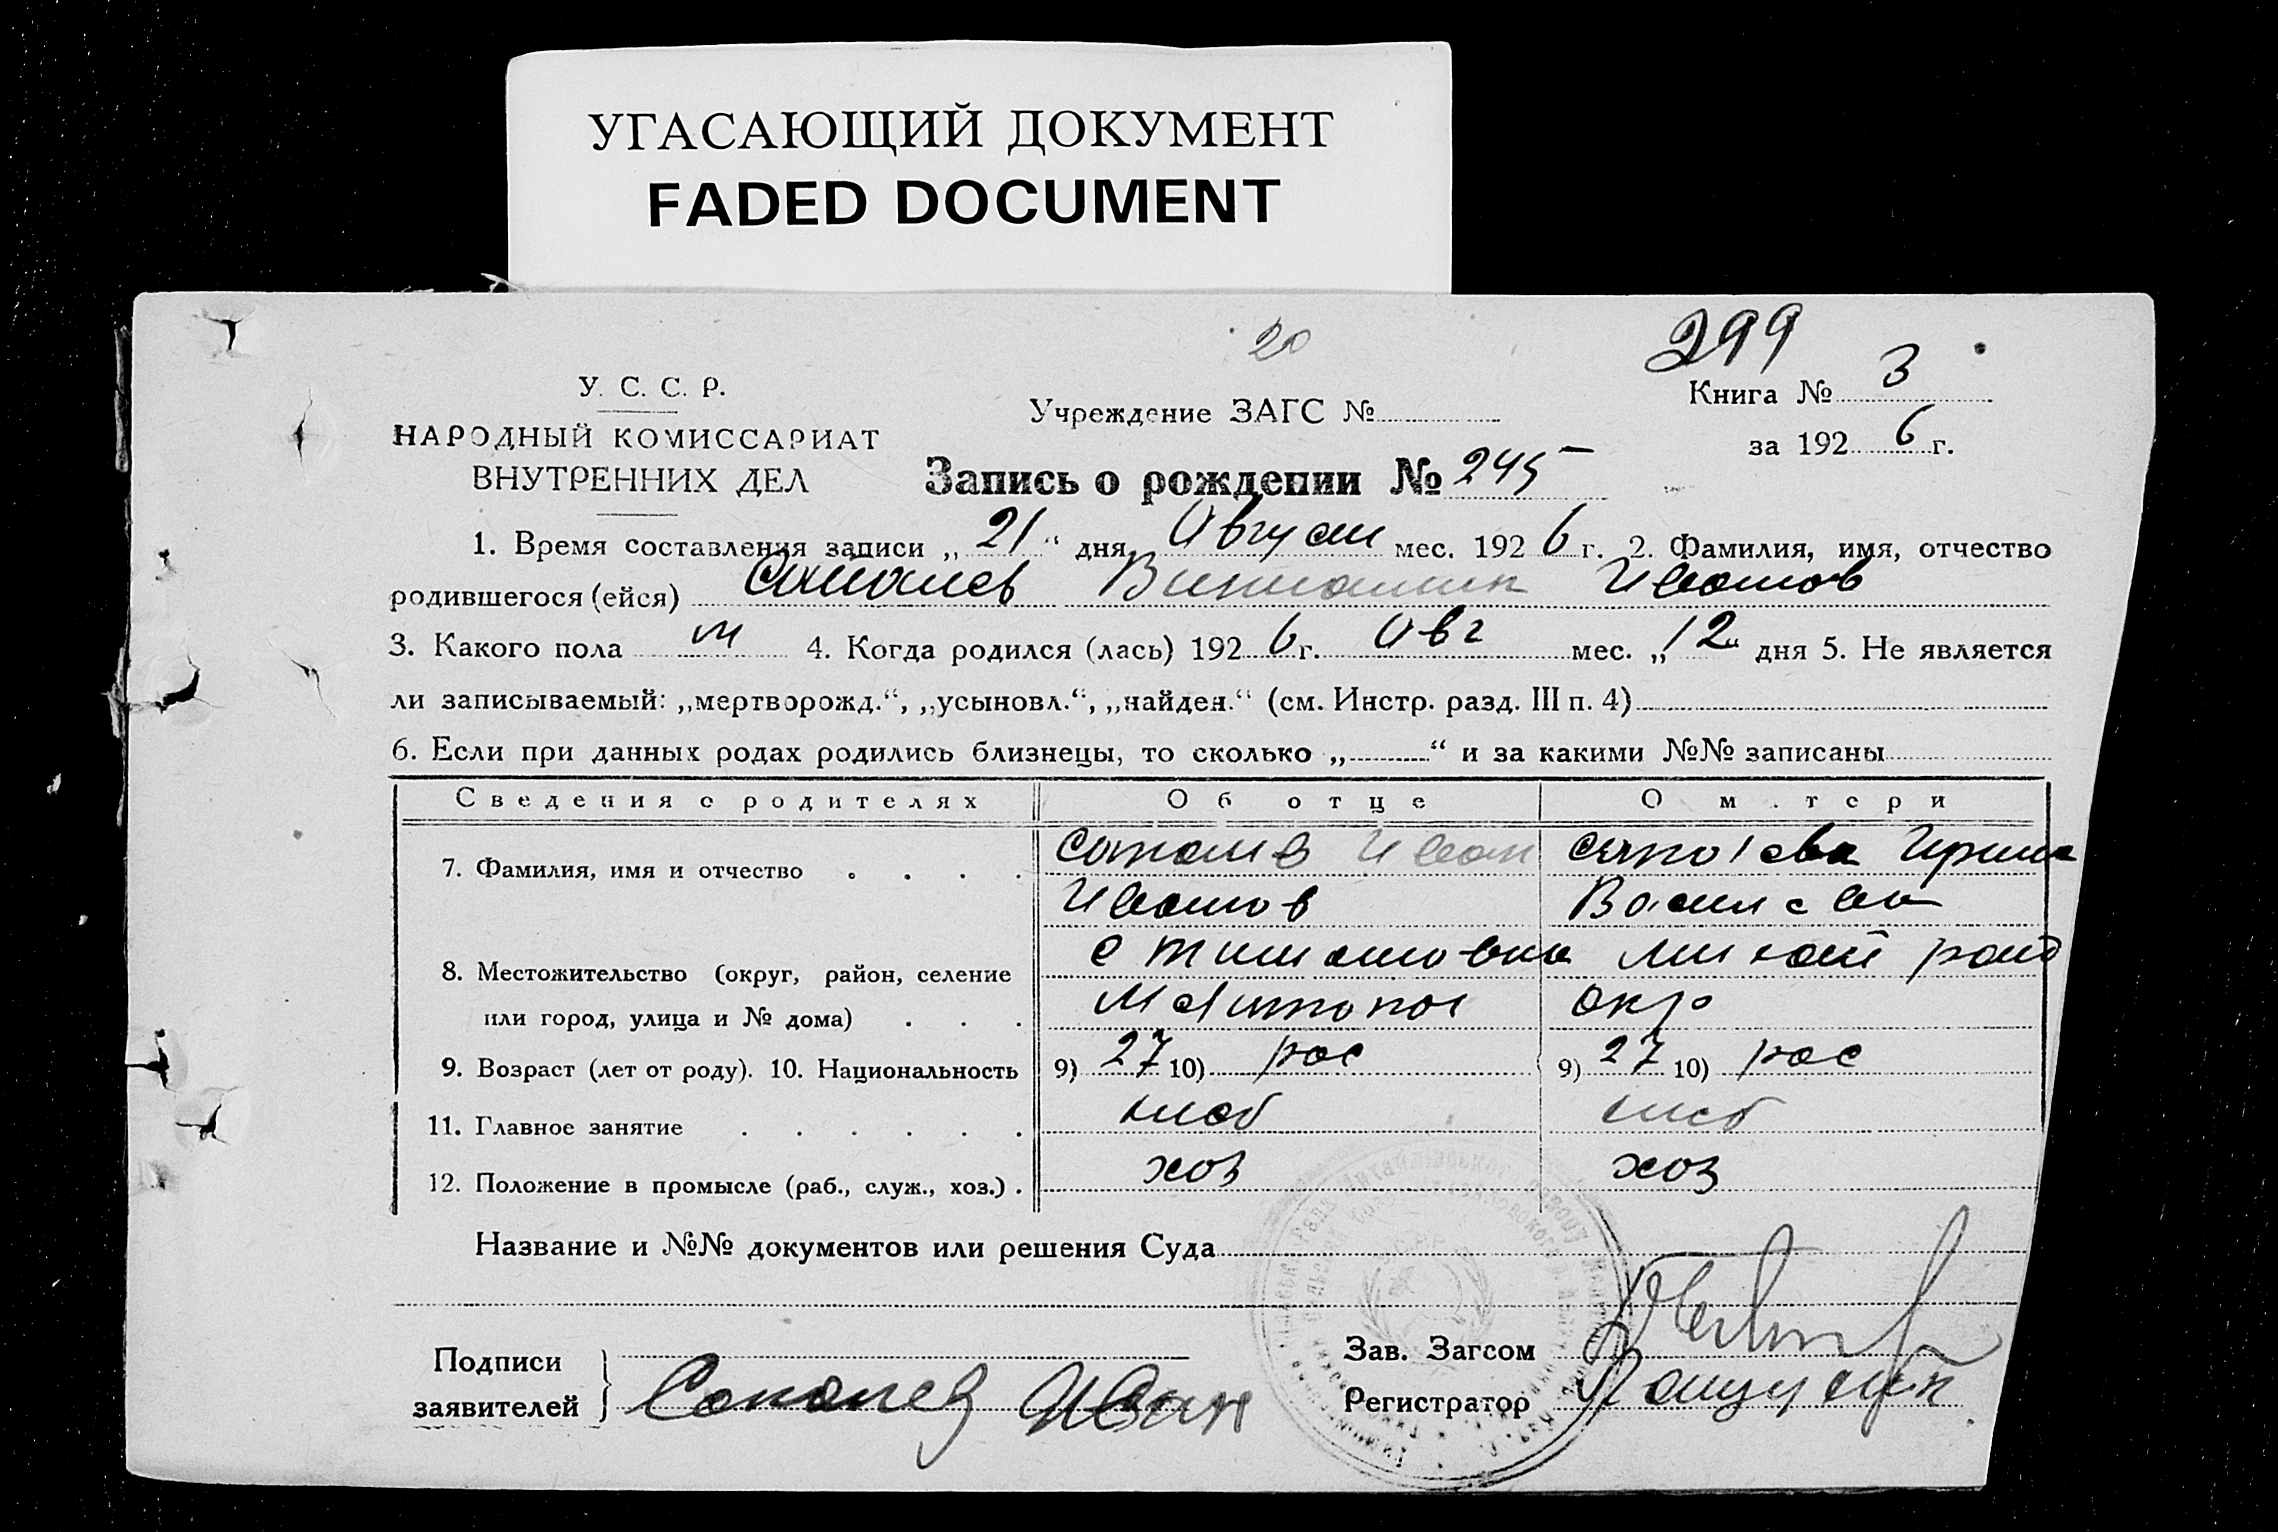 УГАСАЮЩИЙ ДОКУМЕНТ
FADED DOCUMENT
20
299
У. С. С. Р.
НАРОДНЫЙ КОМИССАРИАТ
ВНУТРЕННИХ ДЕЛ
Учреждение ЗАГС №
Книга № 3
за 1926 г.
Запись о рождении № 245
1. Время составления записи „21“ дня Август мес. 1926 г. 2. Фамилия, имя, отчество
родившегося (ейся) Иванов
3. Какого пола м 4. Когда родился (лась) 1926 г. Авг мес. „12“ дня 5. Не является
ли записываемый: „мертворожд.“, „усыновл.“, „найден.“ (см. Инстр. разд. III п. 4)
6. Если при данных родах родились близнецы, то сколько „ “ и за какими №№ записаны
Сведения о родителях Об отце О матери
7. Фамилия, имя и отчество Сапалев Иван Ирина
Иванов
8. Местожительство (округ, район, селение
или город, улица и № дома) окр
9. Возраст (лет от роду). 10. Национальность 9) 27 10) рос 9) 27 10) рос
11. Главное занятие
12. Положение в промысле (раб., служ., хоз.) хоз хоз
Название и №№ документов или решения Суда
Подписи
заявителей Сапалев Иван
Зав. Загсом
Регистратор